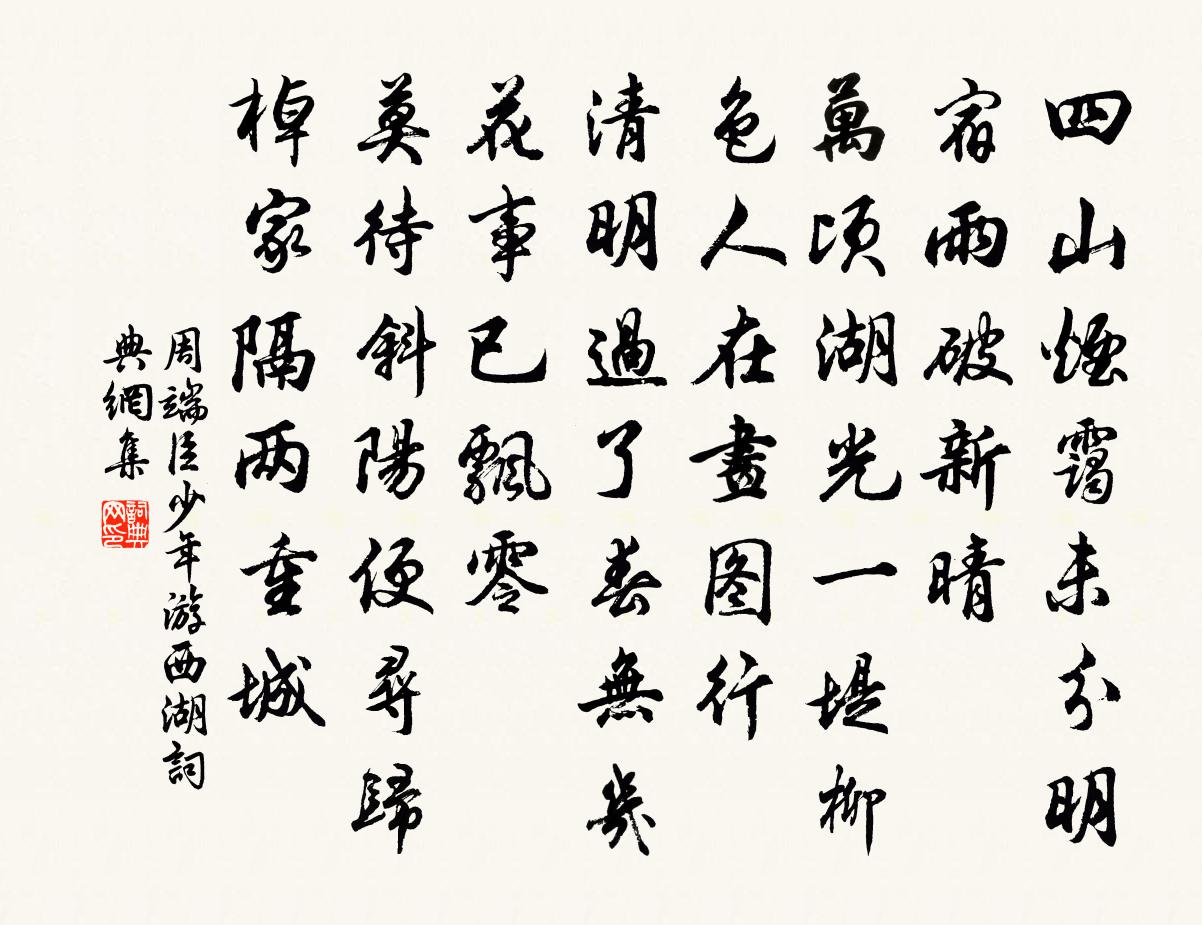 四山煙靄未分明
宿雨破新晴
萬頃湖光一堤柳
色人在畫图行
清明過了春無幾
花事已飄零
莫待斜陽便尋歸
棹家隔两重城
周端臣少年游西湖詞
典網集
詞典网印